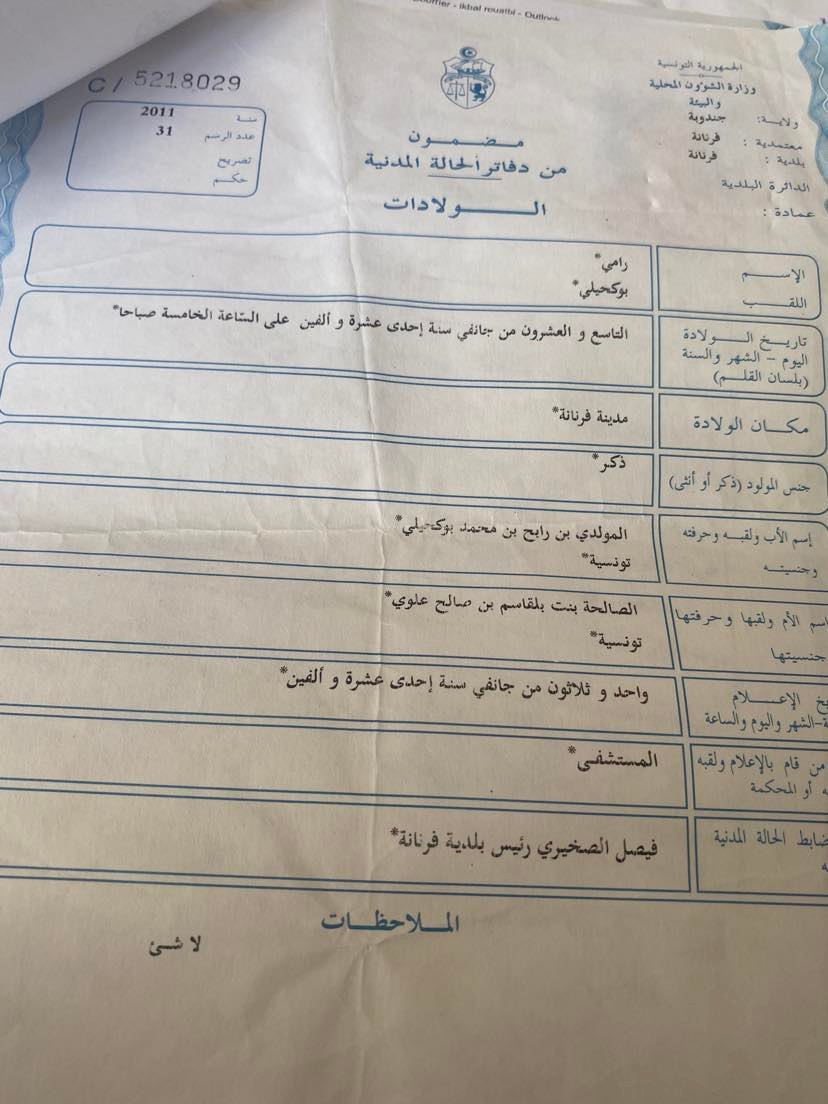 ikbal rouatbi - Outlook
الجمهورية التونسية
وزارة الشؤون المحلية
والبيئة
ولاية: جندوبة
معتمدية : فرنانة
بلدية : فرنانة
الدائرة البلدية
عمادة :
مضمون
من دفاتر الحالة المدنية
الولادات
C / 5218029
سنة 2011
عدد الرسم 31
تصريح
حكم
الإسم رامي*
اللقب بوكحيلي*
تاريخ الولادة
اليوم - الشهر والسنة
(بلسان القلم)
التاسع و العشرون من جانفي سنة إحدى عشرة و ألفين على الساعة الخامسة صباحا*
مكان الولادة مدينة فرنانة*
جنس المولود (ذكر أو أنثى) ذكر*
إسم الأب ولقبه وحرفته
وجنسيته
المولدي بن رابح بن محمد بوكحيلي*
تونسية*
اسم الأم ولقبها وحرفتها
جنسيتها
الصالحة بنت بلقاسم بن صالح علوي*
تونسية*
الإعلام
الشهر واليوم والساعة
واحد و ثلاثون من جانفي سنة إحدى عشرة و ألفين*
من قام بالإعلام ولقبه
أو المحكمة
المستشفى*
ضابط الحالة المدنية
فيصل الصخيري رئيس بلدية فرنانة*
الملاحظات
لا شئ